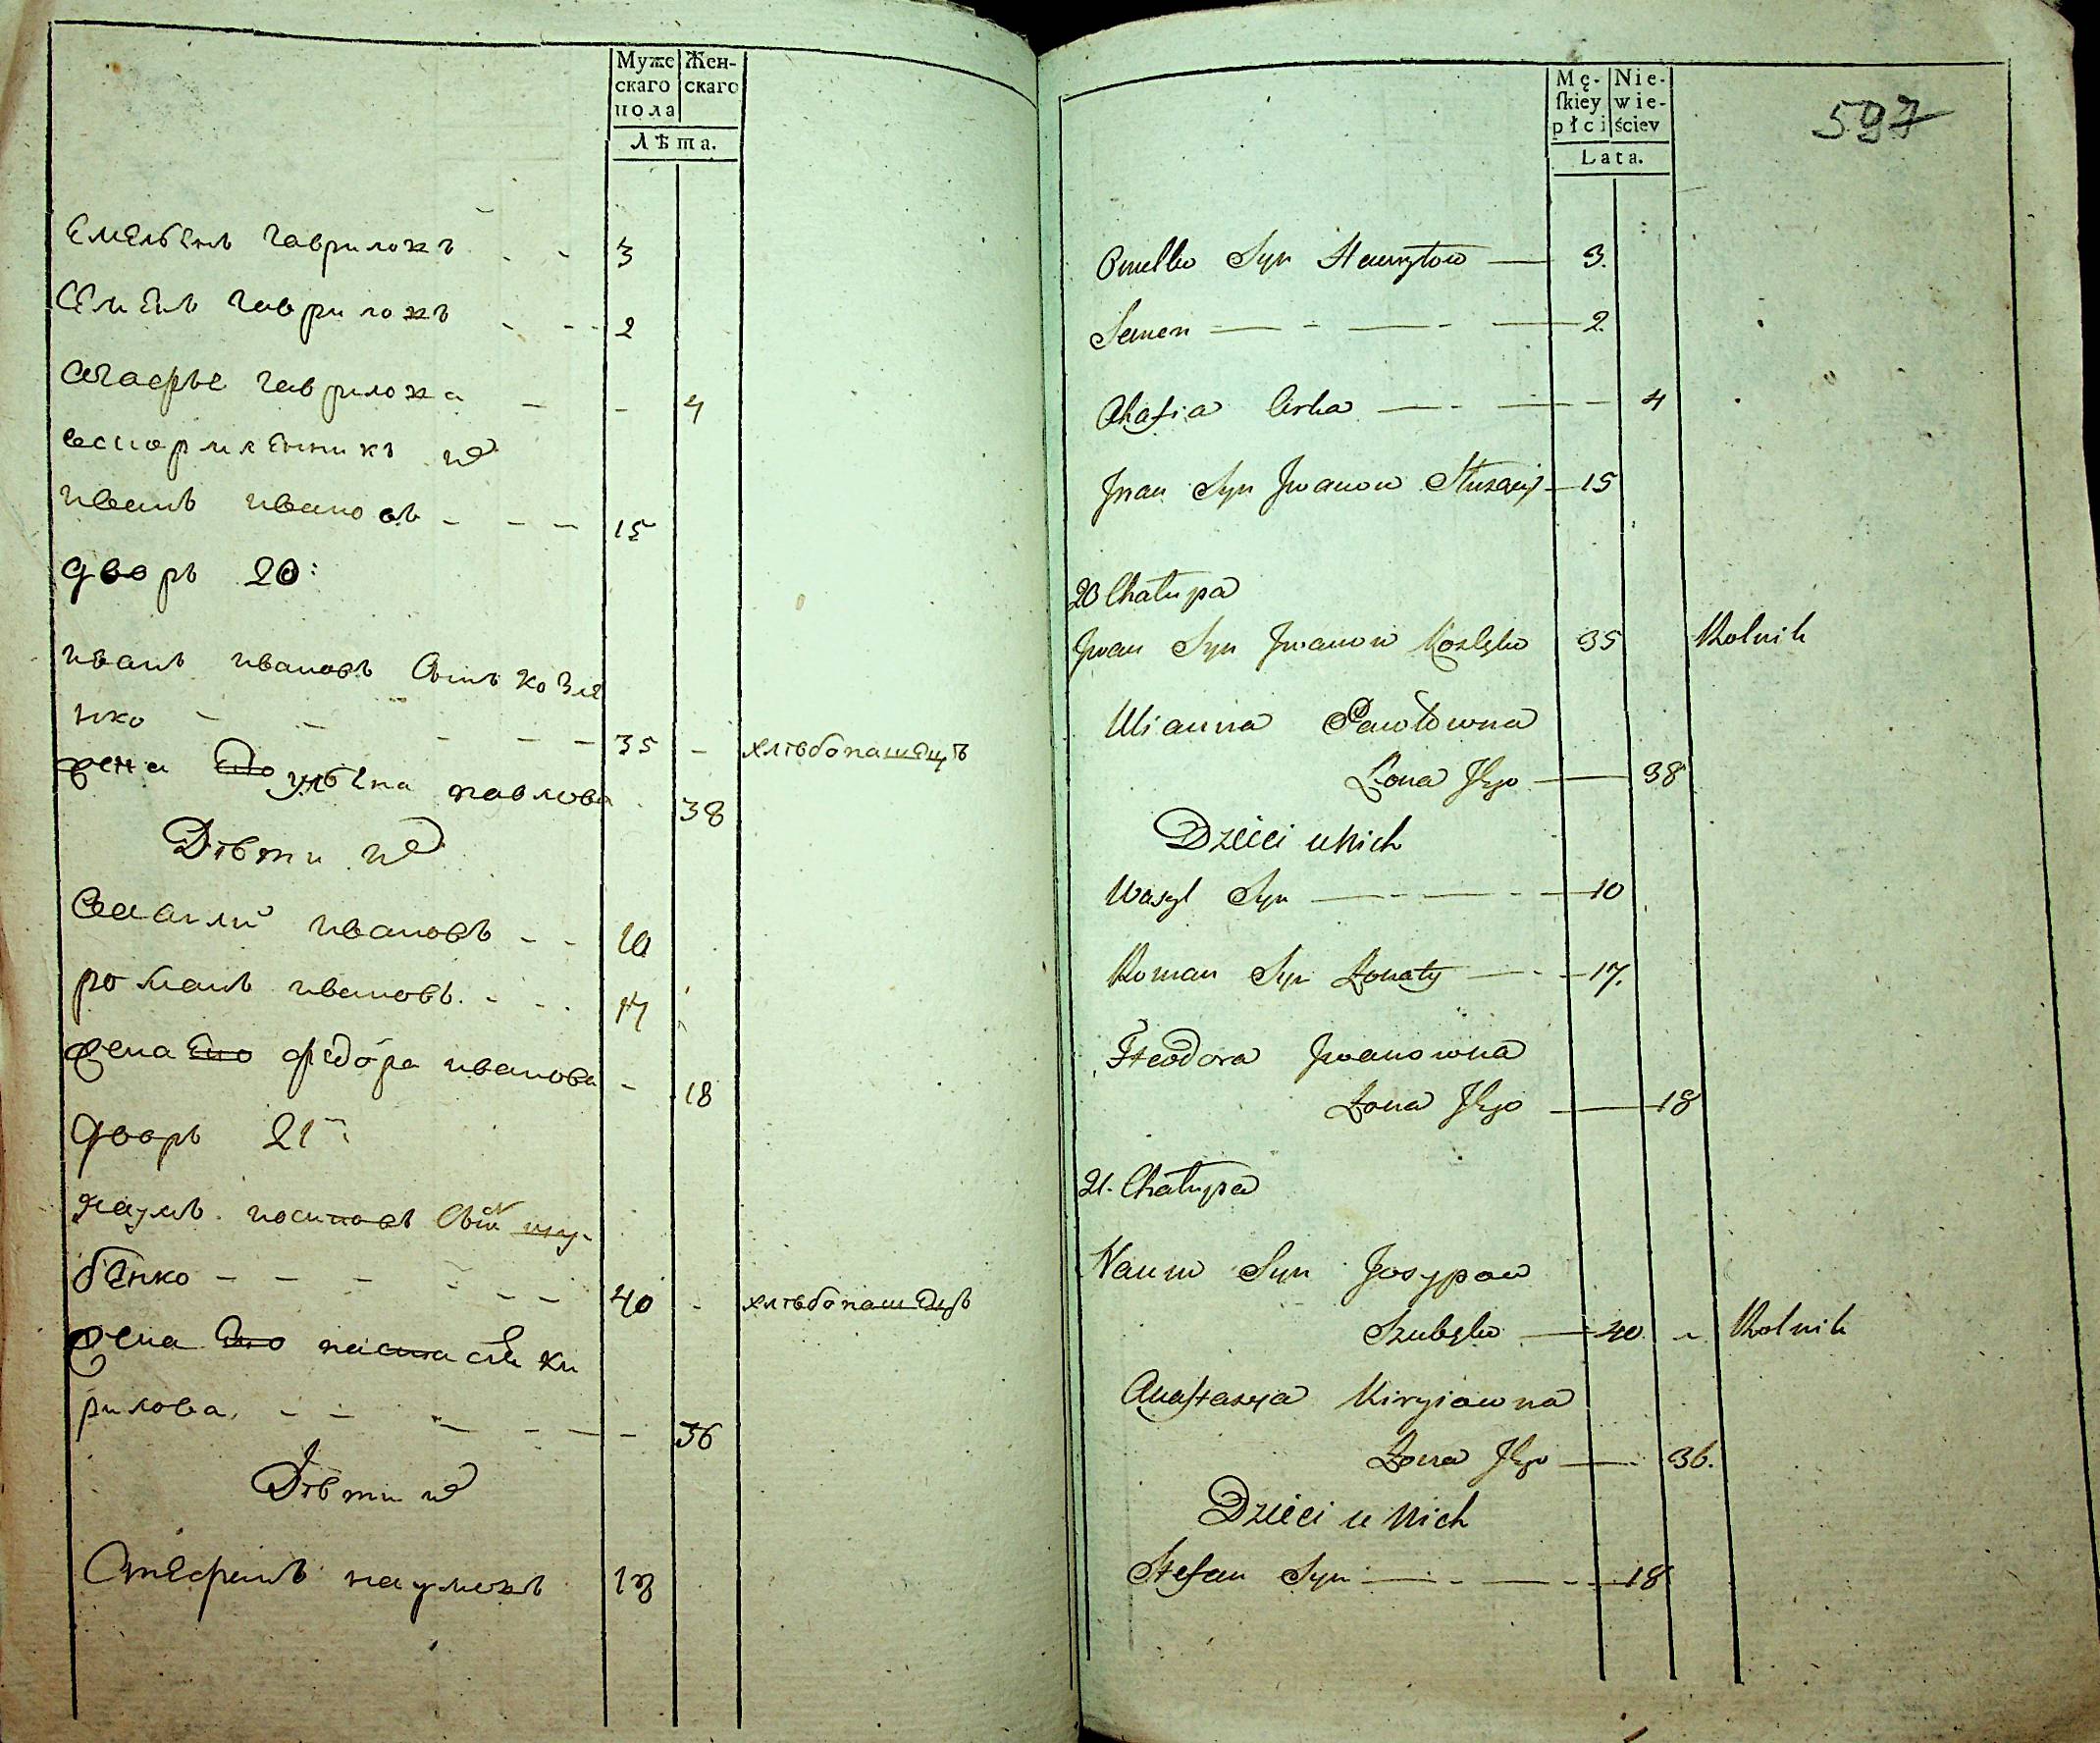 Муже Жен-
скаго скаго
пола
Лѣта.
Емельянъ гавриловъ - - 3
Семенъ гавриловъ - - - 2
Агафья гаврилова - - 4
воспормленникъ ихъ
иванъ ивановъ - - - 15
дворъ 20:
иванъ ивановъ сынъ козле
нко - - - - - 35 - хлѣбопашецъ
жена Его ульяна павлова 38
Дѣти ихъ
василий ивановъ - - 10
романъ ивановъ - - - 17
жена Его федора иванова - 18
дворъ 21й
наумъ иосиповъ сынъ шу-
бенко - - - - - - 40 - хлѣбопашецъ
жена Его настасия ки
рилова - - - - - - 36
Дѣти ихъ
Стефанъ наумовъ 18
Mę- Nie-
ſkiey wie-
płci ściey
Lata.
597
Omelko Syn Hawryłow — 3.
Semen — - — - — 2.
Ahafia Corka — - — - 4
Jwan Syn Jwanow Służący — 15
20 Chałupa
Jwan Syn Jwanow Kozlęko 35 Rolnik
Ulianna Pawłowna
Żona Jego — 38
Dzieci u Nich
Wasyl Syn — - — - — 10
Roman Syn Żonaty — - — 17.
Fteodora Jwanowna
Żona Jego — 18
21. Chałupa
Naum Syn Josypow
Szubęko — 40 - Rolnik
Anaſtazya Kiryłowna
Żona Jego — 36.
Dzieci u Nich
Stefan Syn — - — - — 18